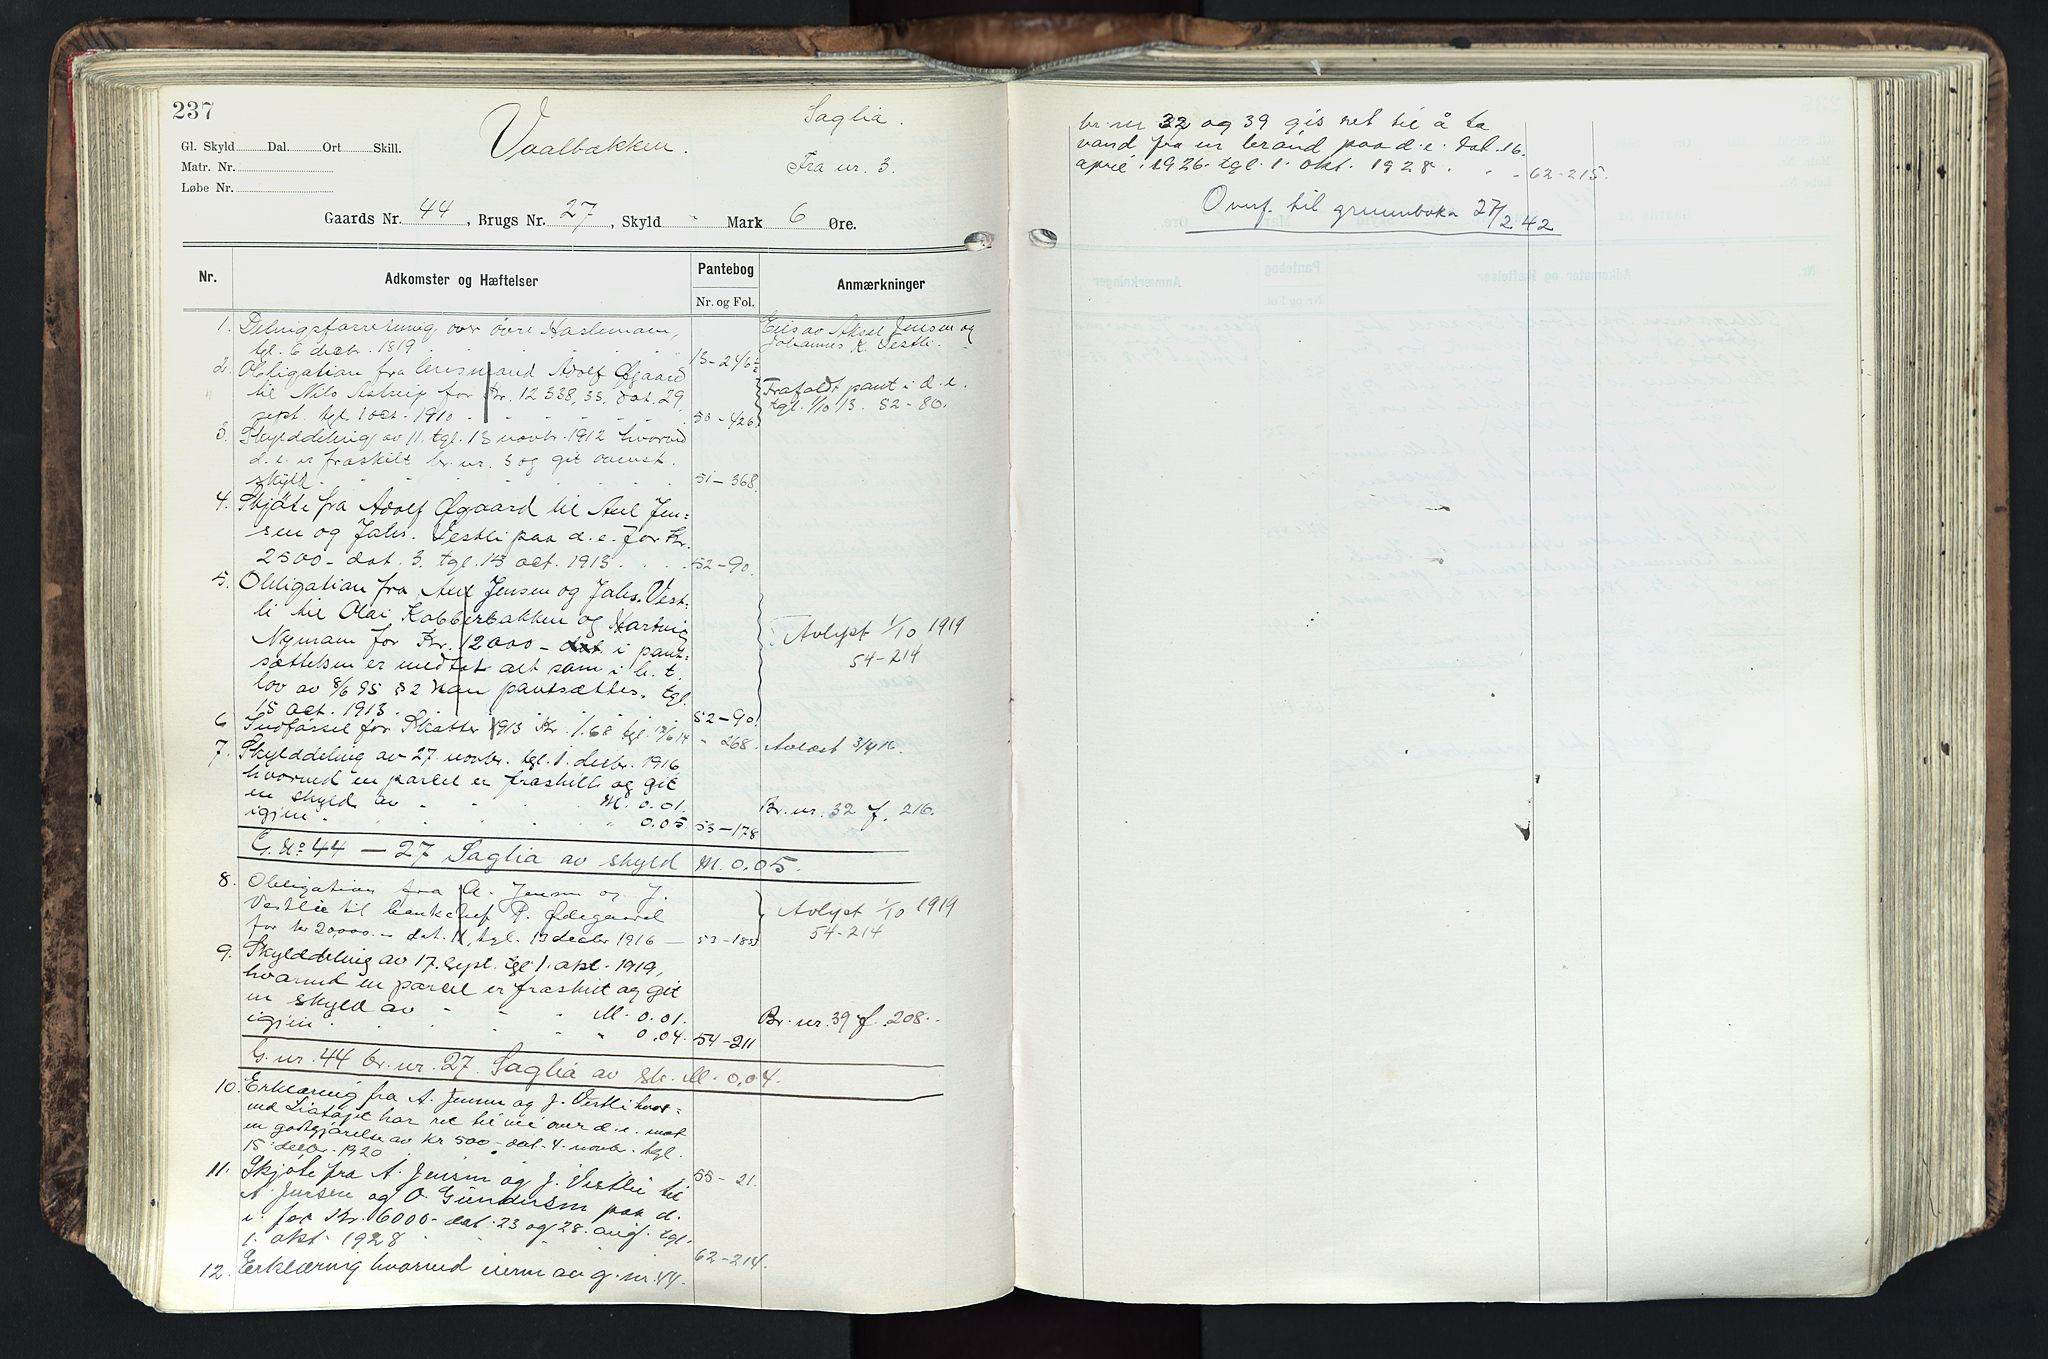 237
Vaalbakken.
Saglia.
Fra nr. 3.
Gl. Skyld Dal. Ort Skill.
Matr. Nr.
Løbe Nr.
Gaards Nr. 44, Brugs Nr. 27, Skyld - Mark 6 Øre.
Nr. Adkomster og Hæftelser Pantebog Nr. og Fol. Anmærkninger
1. Delingsforretning over övre
tgl. 6 decbr. 1819 13-246
Eies av Aksel Jensen og
Johannes K. Vestli.
2. Obligation fra Adolf Øgaard
til Nils Astrup for Kr. 12538,35, dat. 29
sept. tgl. 1 oct. 1910 50-426
Frafaldt pant i d. e.
tgl. 1/10 13. 52-80.
3. Skylddeling av 11. tgl. 13 novbr. 1912 hvorved
d. e. er fraskilt br. nr. 3 og git ovenst.
skyld 51-368
4. Skjöte fra Adolf Øgaard til Axel Jen-
sen og Johs. Vestli paa d. e. for Kr.
2500- dat. 3. tgl. 15 oct. 1913 52-90.
5. Obligation fra Axel Jensen og Johs. Vest-
li til Olai Kobberbakken og Hartvig
Nyman for Kr. 12000- dat. i pant-
sættelsen er medtat alt som i h. t.
lov av 8/6 95 § 2 kan pantsættes. tgl.
15 oct. 1913 52-90.
Avlyst 1/10 1919
54-214
6 Indförsel for Skatter 1913 Kr. 1.68 tgl. 6/14 - 268. Avlæst 3/4 16.
7. Skylddeling av 27. novbr. tgl. 1. decbr. 1916,
hvorved en parcel er fraskilt og git
en skyld av M. 0.01. Br. nr. 32 f. 216.
igjen. 0.05. 53-178
G. No 44 - 27 Saglia av skyld M. 0.05.
8. Obligation fra A. Jensen og J.
Vestlie til banksjef P. Ødegaard
for kr 20,000.- dat. 11, tgl. 13 decbr 1916 - 53-185
Avlyst 1/10 1919
54-214
9. Skylddeling av 17. sept. tgl 1. okt. 1919,
hvorved en parcel er fraskilt og git
en skyld av M. 0.01. Br. nr. 39 f. 208.
igjen " 0.04. 54-211
G. nr. 44 br. nr. 27. Saglia av sk. M. 0.04.
10. Erklæring fra A. Jensen og J. Vestli hvor-
ved har ret til vei over d. e. mot
en godtgjörelse av kr 500- dat. 4. novbr. tgl.
15 decbr. 1920 55-21.
11. Skjöte fra A. Jensen og J. Vestlie til
A. Jensen og O. Gundersen paa d.
e. for Kr. 6000- dat. 23 og 28. aug. tgl.
1. okt. 1928 62-214.
12. Erklæring hvorved eieren av g. nr. 44.
br. nr 32 og 39 gis ret til å ta
vand fra en brönd paa d. e. dat. 16.
april 1926. tgl. 1. okt. 1928 62-215.
Overf. til grunnboka 27/2 42